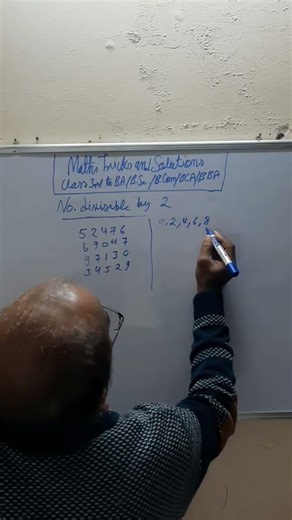 Maths Tricks and Solutions
Class 3rd to BA/BSc/BCom/BCA/BBA
No. divisible by 2
52476
69047
97130
34529
0,2,4,6,8